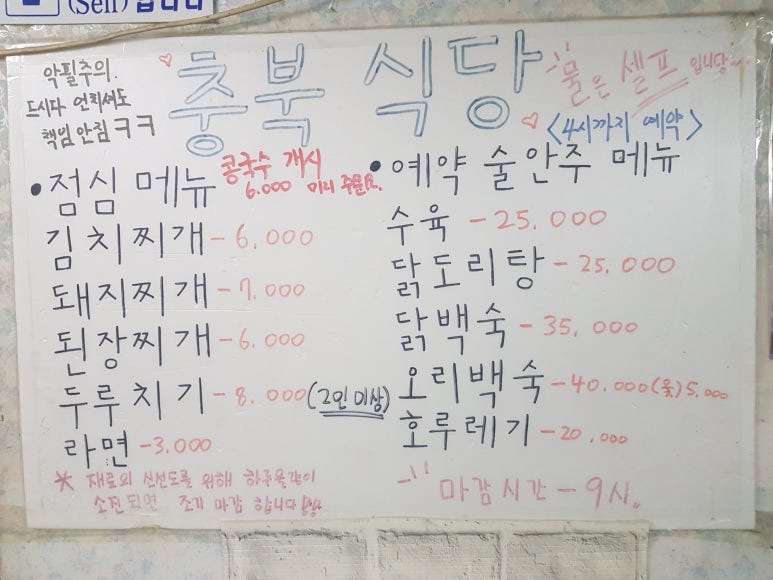 (Self) 입니다
악필주의.
드시다 언히셔도
책임안짐 ㅋㅋ
충북 식당
물은 셀프 입니다~
<4시까지 예약>
• 점심 메뉴
콩국수 개시
6.000 미리 주문요.
김치찌개 - 6.000
돼지찌개 - 7.000
된장찌개 - 6.000
두루치기 - 8.000 (2인 이상)
라면 - 3.000
* 재료의 신선도를 위해
소진되면 조기 마감 합니다
• 예약 술안주 메뉴
수육 - 25.000
닭도리탕 - 25.000
닭백숙 - 35.000
오리백숙 - 40.000 (옻) 5.000
호루레기 - 20.000
마감시간 - 9시..